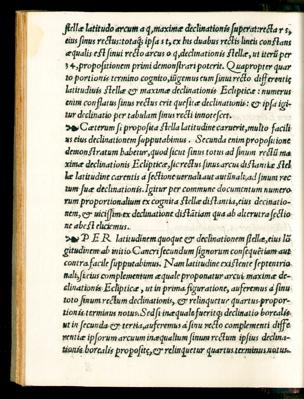 stellæ latitudo arcum a q, maximæ declinationis superat: recta r s,
eius sinus rectus: totaq; ipsa s t, ex his duabus rectis lineis constans
æqualis est sinui recto arcus o q, declinationis stellæ, ut iterũ per
34, propositionem primi demonstrari poterit. Quapropter quar
to portionis termino cognito, iũgemus cum sinu recto differentiæ
latitudinis stellæ & maximæ declinationis Eclipticæ: numerus
enim conflatus sinus rectus erit quesitæ declinationis: & ipsa igi-
tur declinatio per tabulam sinus recti innotescet.
Cæterum si proposita stella latitudine caruerit, multo facili
us eius declinationem supputabimus. Secunda enim propositione
demonstratum habetur, quod sicut sinus totus ad sinum rectũ ma
ximæ declinationis Eclipticæ, sic rectus sinus arcus distantiæ stel
læ latitudine carentis a sectione uernali aut autũnali, ad sinum rec
tum suæ declinationis. Igitur per commune documentum numero-
rum proportionalium ex cognita stellæ distantia, eius declinatio-
nem, & uicissim ex declinatione distãtiam qua ab alterutra sectio-
ne abest eliciemus.
PER latitudinem quoque & declinationem stellæ, eius lõ
gitudinem ab initio Cancri secundum signorum consequẽtiam aut
contra facile supputabimus. Nam latitudine existente septentrio-
nali, si eius complementum æquale proponatur arcui maximæ de-
clinationis Eclipticæ, ut in prima figuratione, auferemus a sinu
toto sinum rectum declinationis, & relinquetur quartus propor-
tionis terminus notus. Sed si inæquale fuerit q; declinatio borealis
ut in secunda & tertia, auferemus a sinu recto complementi diffe-
rentiæ ipsorum arcuum inæqualium sinum rectum ipsius declina-
tionis borealis propositæ, & relinquetur quartus terminus notus.